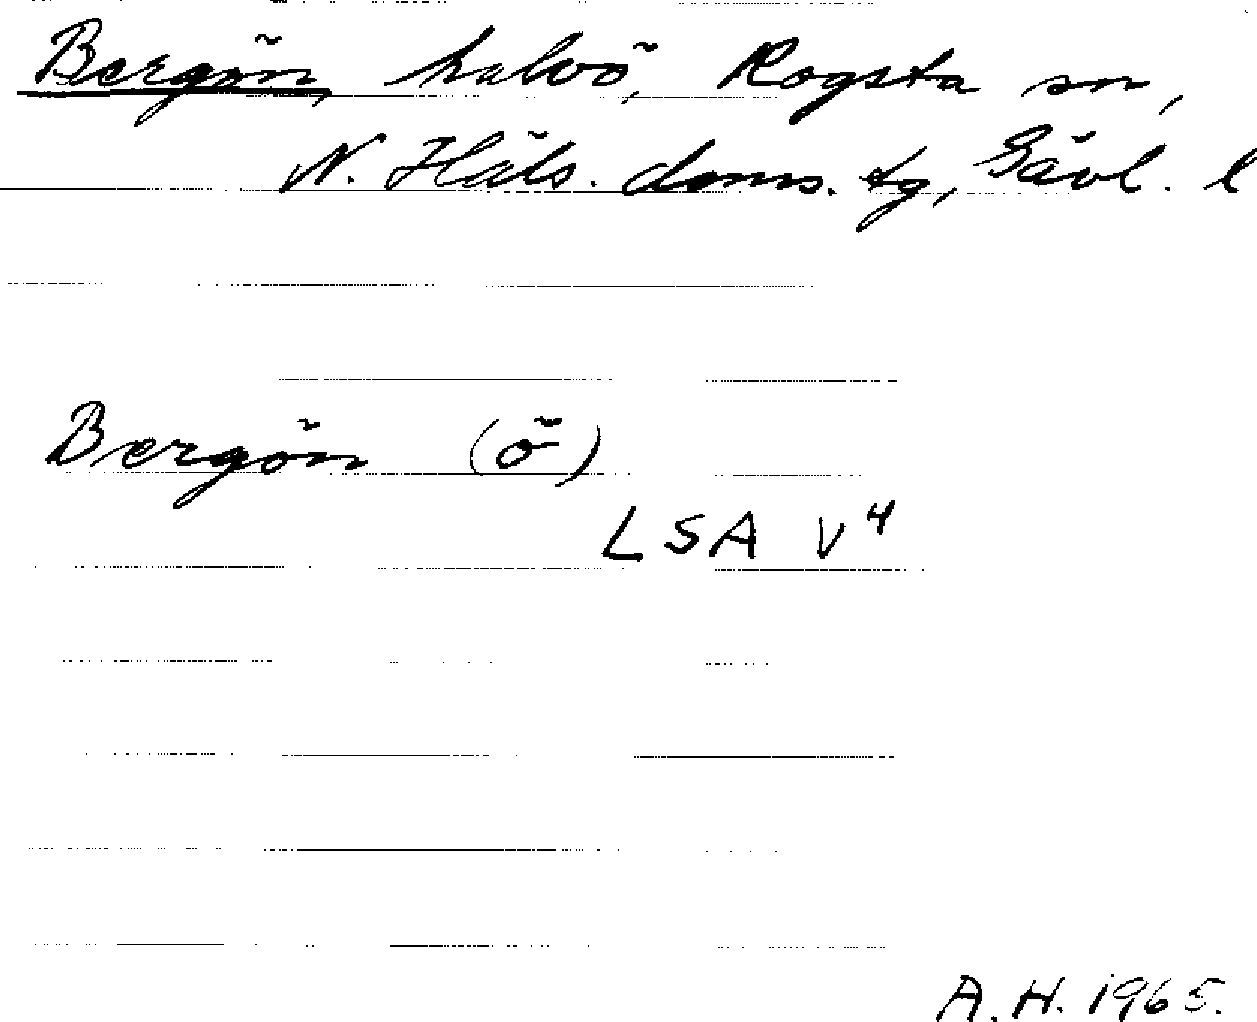 Bergön, halvö, Rogsta sn,
N. Häls. doms. tg, Gävl. l
Bergön (ö)
LSA V4
A.H. 1965.